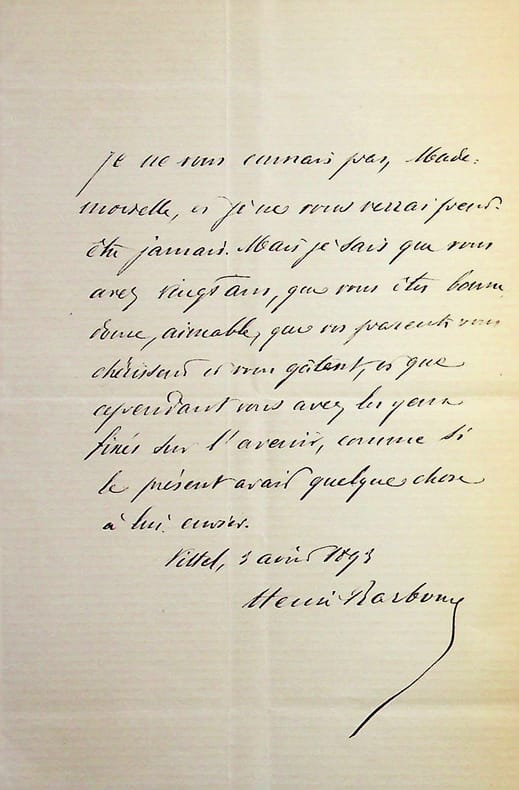 Je ne vous connais pas, Made-
moiselle, et je ne vous verrai peut-
être jamais. Mais je sais que vous
avez vingt ans, que vous êtes bonne
douce, aimable, que vos parents vous
chérissent et vous gâtent, et que
cependant vous avez les yeux
fixés sur l'avenir, comme si
le présent avait quelque chose
à lui envier.
Vittel, 3 août 1893
Henri Barboux